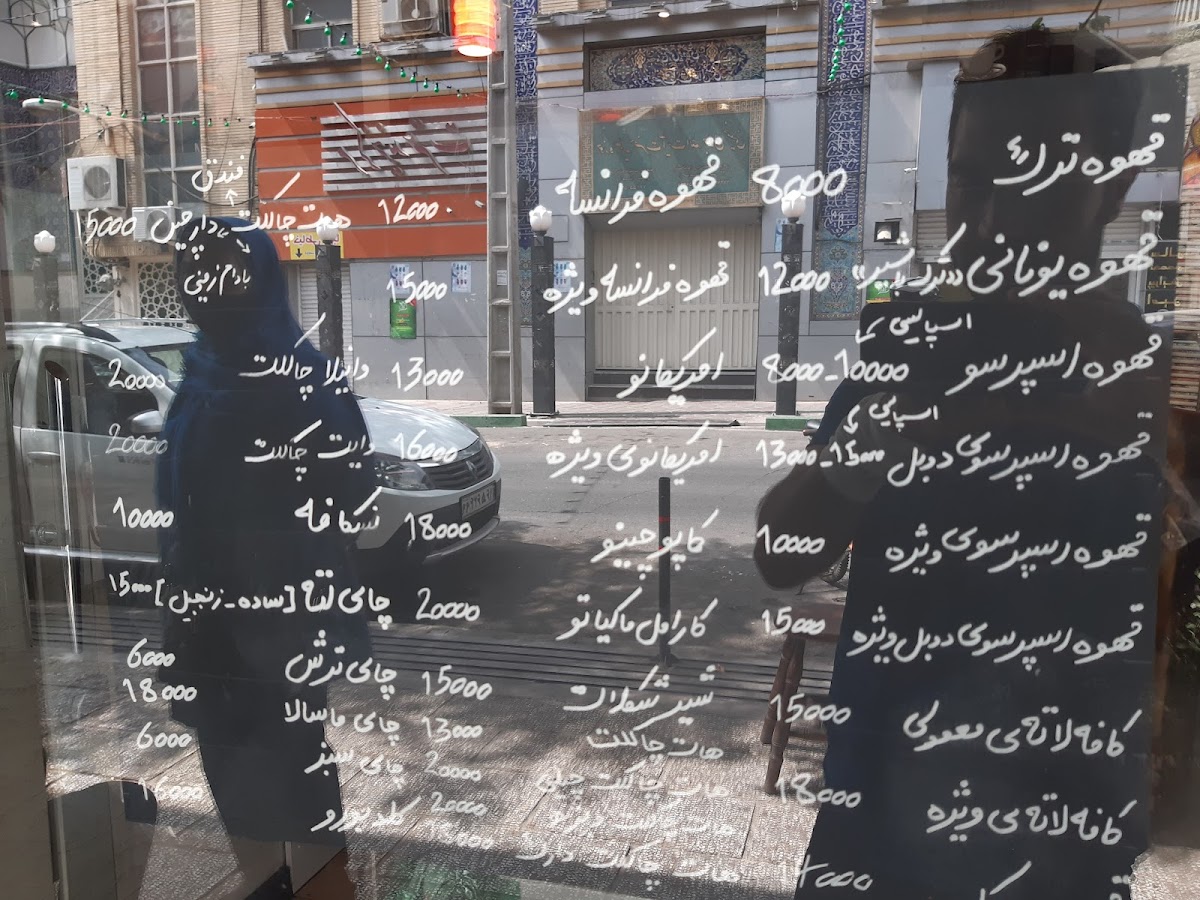 قهوه ترک 8000
قهوه یونانی «ترک با شیر» 12000
اسپایسی
قهوه اسپرسو 8000-10000
اسپایسی
قهوه اسپرسوی دوبل 13000-15000
قهوه اسپرسوی ویژه 10000
قهوه اسپرسوی دوبل ویژه 15000
کافه لاته‌ی معمولی 15000
کافه لاته‌ی ویژه 18000
قهوه فرانسه 12000
قهوه فرانسه ویژه 15000
امریکانو 13000
امریکانوی ویژه 16000
کاپوچینو 18000
کارامل ماکیاتو 20000
شیر شکلات 15000
هات چاکلت 13000
هات چاکلت چیلی 20000
هات چاکلت 20000
هات چاکلت دارک
فندق
هات چاکلت دارچین 15000
بادام زمینی
وانیلا چاکلت 20000
وایت چاکلت 20000
نسکافه 10000
چای لته [ساده-زنجبیل] 15000
چای ترش 6000
چای ماسالا 18000
چای سبز 6000
16000